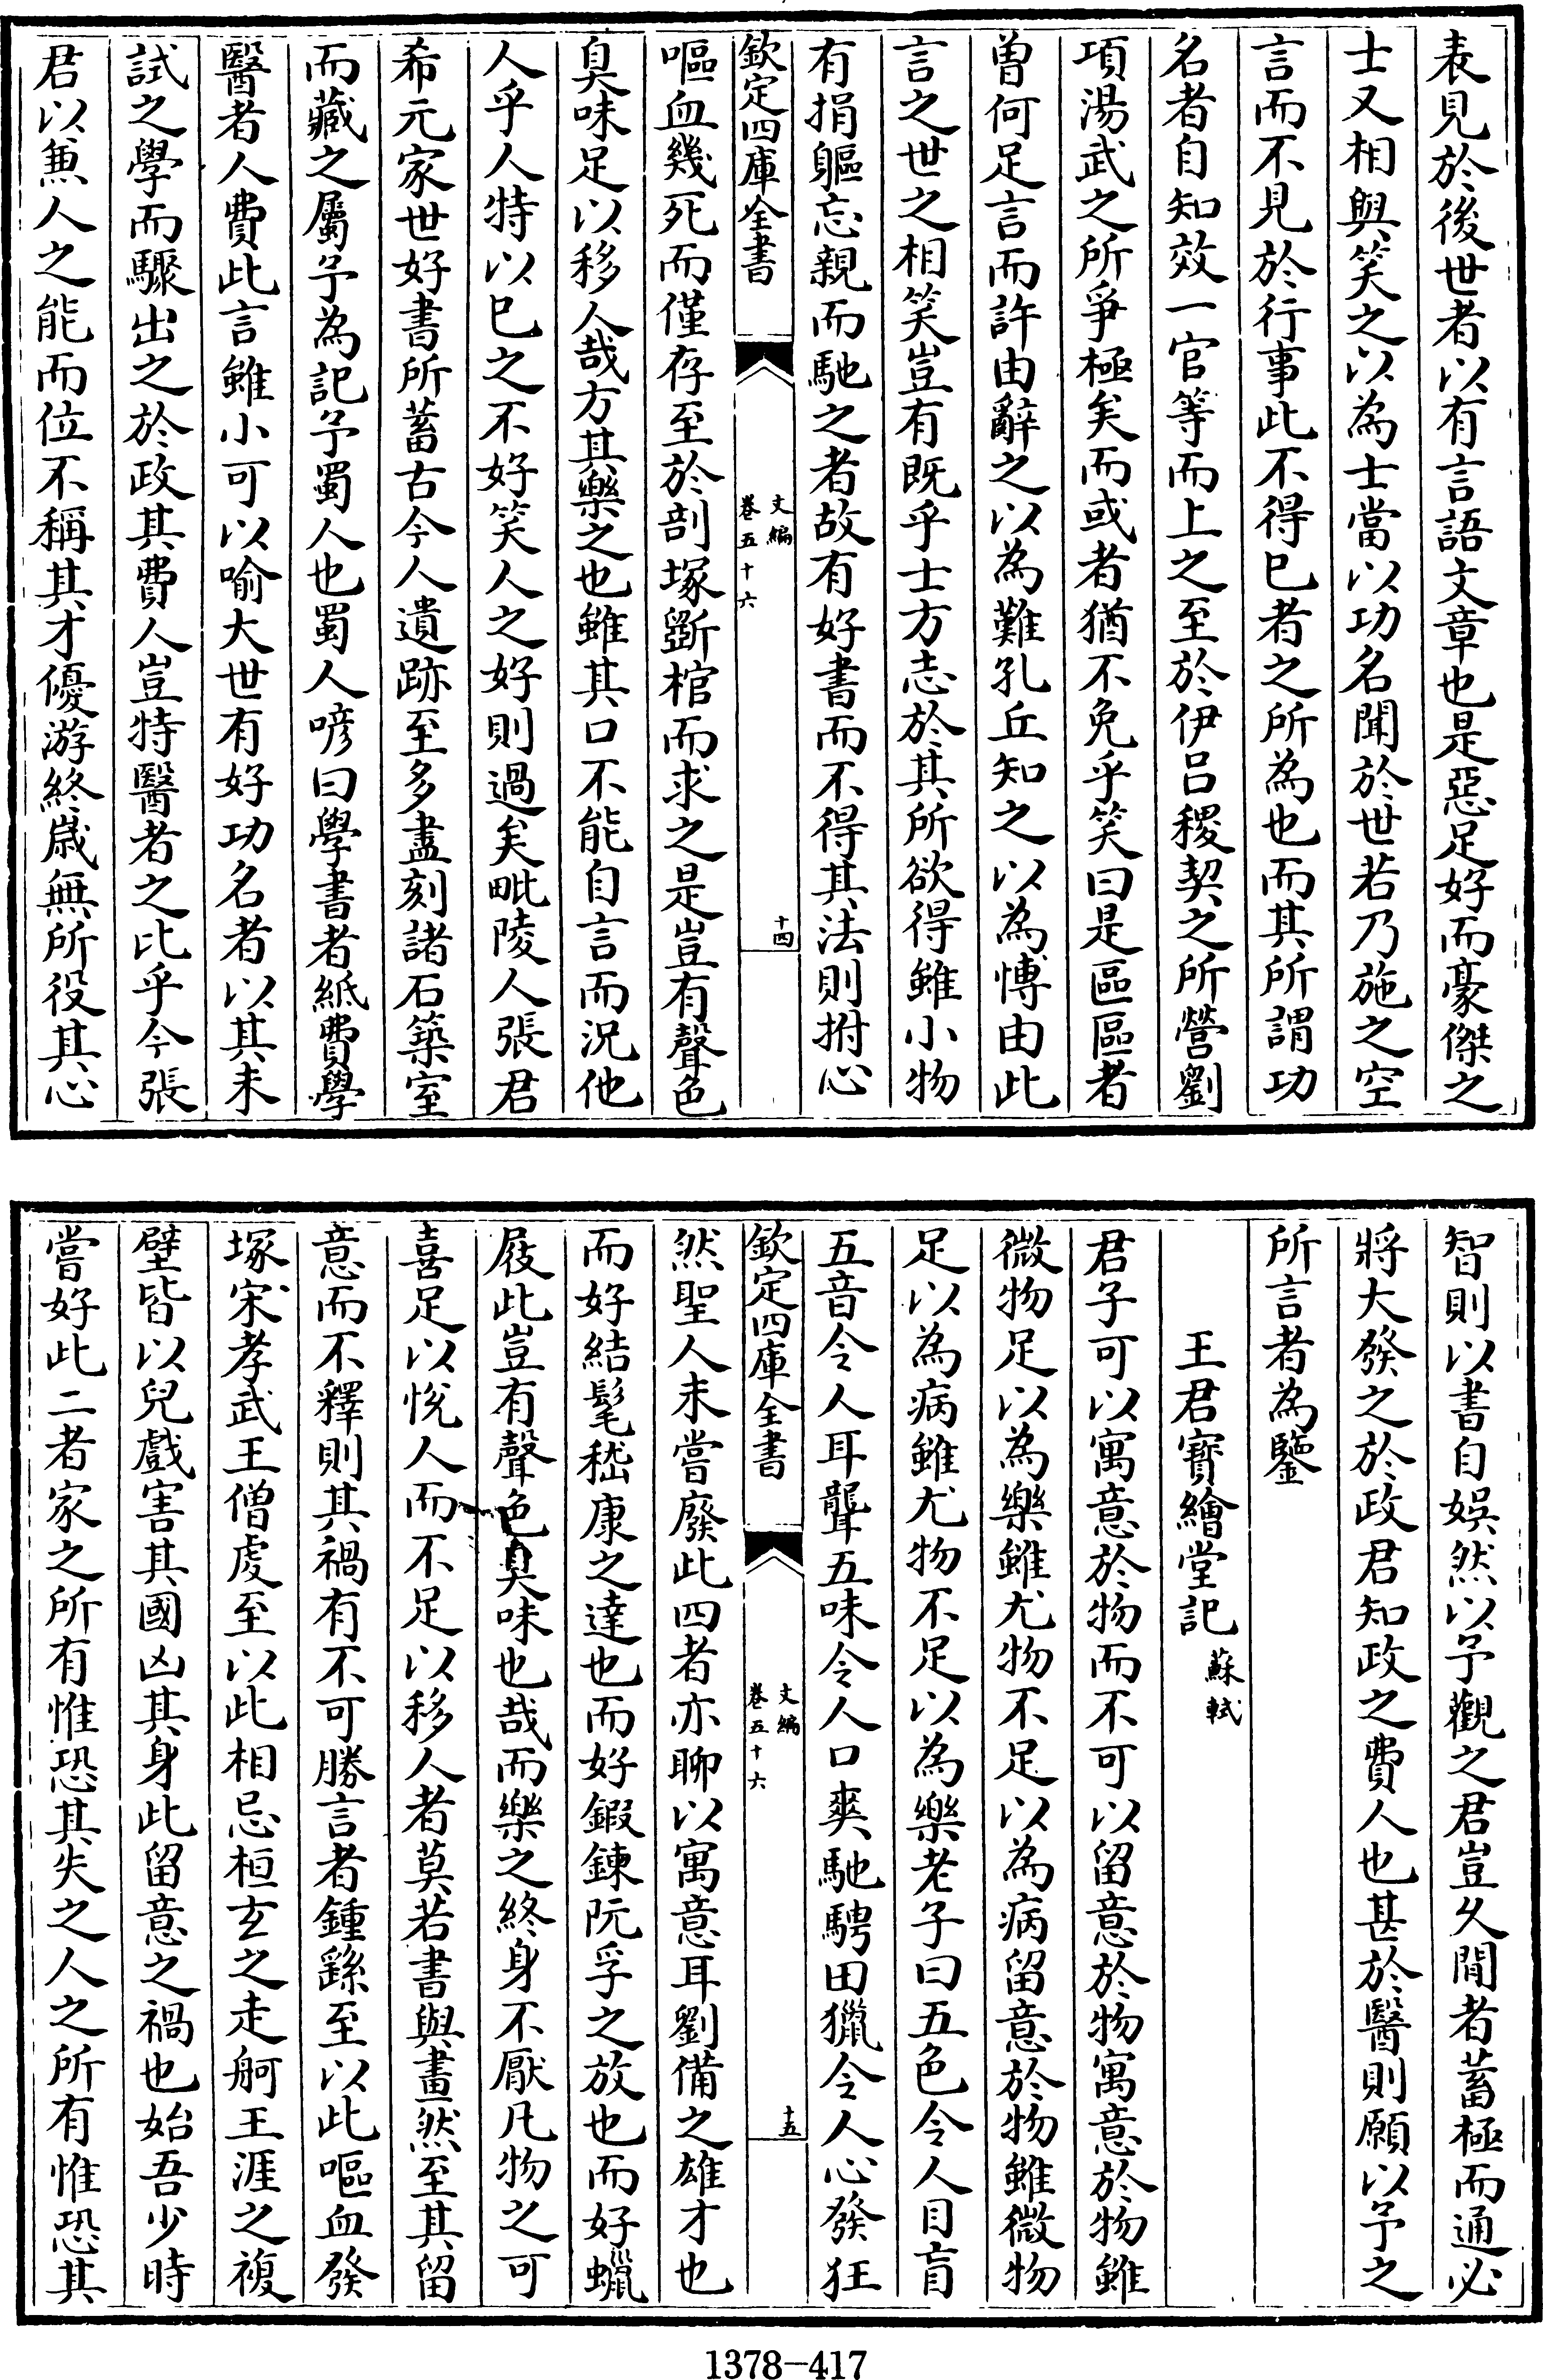 表見於後世者以有言語文章也是惡足好而豪傑之
士又相與笑之以為士當以功名聞於世若乃施之空
言而不見於行事此不得已者之所為也而其所謂功
名者自知效一官等而上之至於伊吕稷契之所營劉
項湯武之所爭極矣而或者猶不免乎笑曰是區區者
曽何足言而許由辭之以為難孔丘知之以為愽由此
言之世之相笑豈有既乎士方志於其所欲得雖小物
有捐軀忘親而馳之者故有好書而不得其法則拊心
欽定四庫全書
文編
卷五十六
十四
嘔血幾死而僅存至於剖塚斵棺而求之是豈有聲色
臭味足以移人哉方其樂之也雖其口不能自言而況他
人乎人特以已之不好笑人之好則過矣毗陵人張君
希元家世好書所蓄古今人遺跡至多盡刻諸石築室
而藏之屬予為記予蜀人也蜀人諺曰學書者紙費學
醫者人費此言雖小可以喻大世有好功名者以其未
試之學而驟出之於政其費人豈特醫者之比乎今張
君以兼人之能而位不稱其才優游終嵗無所役其心
智則以書自娱然以予觀之君豈久閒者蓄極而通必
將大發之於政君知政之費人也甚於醫則願以予之
所言者為鑒
王君寳繪堂記
蘇軾
君子可以寓意於物而不可以留意於物寓意於物雖
微物足以為樂雖尤物不足以為病留意於物雖微物
足以為病雖尤物不足以為樂老子曰五色令人目盲
五音令人耳聾五味令人口爽馳騁田獵令人心發狂
欽定四庫全書
文編
卷五十六
十五
然聖人未嘗廢此四者亦聊以寓意耳劉備之雄才也
而好結髦嵇康之達也而好鍜鍊阮孚之放也而好蠟
屐此豈有聲色臭味也哉而樂之終身不厭凡物之可
喜足以悅人而不足以移人者莫若書與畫然至其留
意而不釋則其禍有不可勝言者鍾繇至以此嘔血發
塚宋孝武王僧䖍至以此相忌桓玄之走舸王涯之複
壁皆以兒戲害其國凶其身此留意之禍也始吾少時
嘗好此二者家之所有惟恐其失之人之所有惟恐其
1378-417